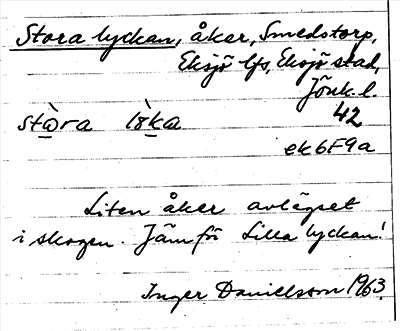 Stora lyckan, åker, Smedstorp,
Eksjö lfs, Eksjö stad,
Jönk. l.
42
stɷ̀ra lʏ̀ka
ek6F9a
Liten åker avlägset
i skogen. Jämför Lilla lyckan!
Inger Danielsson 1963.